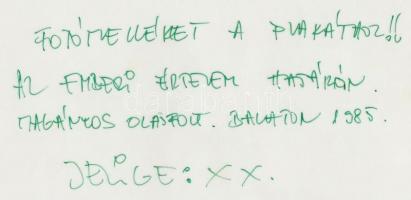 FOTÓMELLÉKET A PLAKÁTHOZ!!
AZ EMBERI ÉRTELEM HATÁRÁN.
MAGÁNYOS OLAJFOLT. BALATON 1985.
JELIGE: XX.